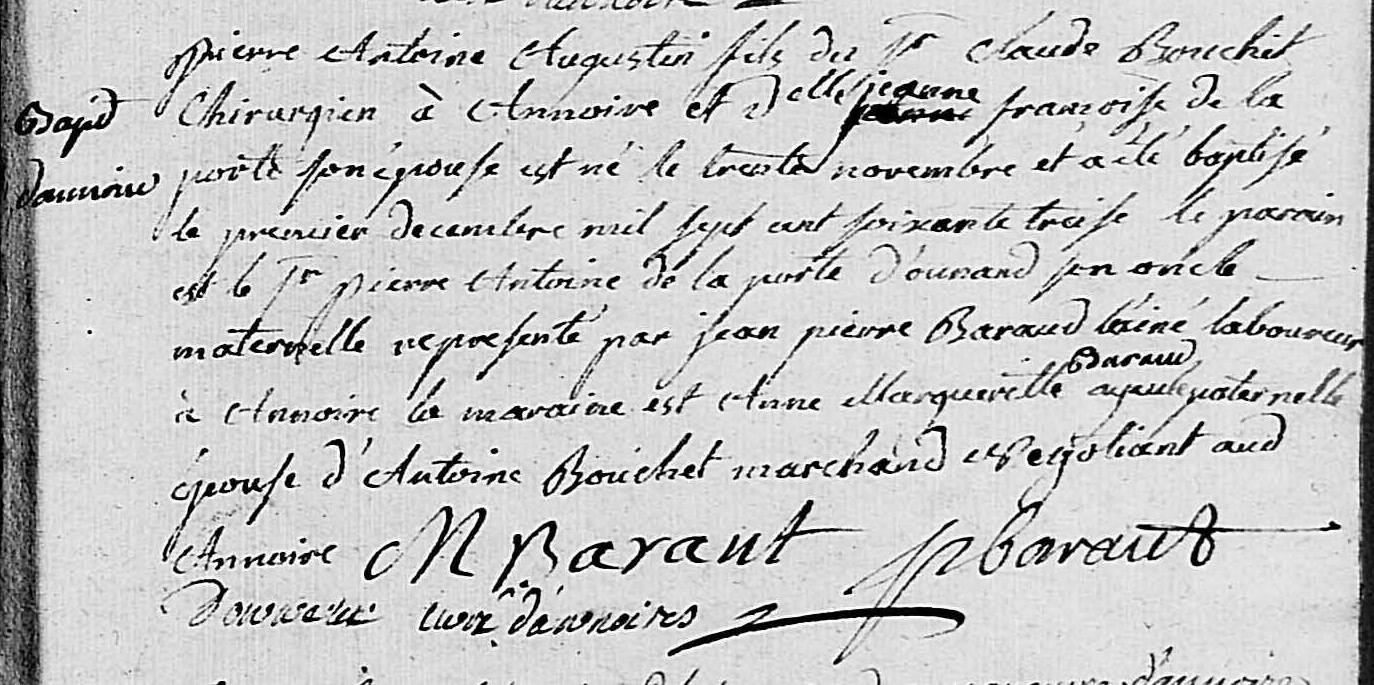 d'annoire
pierre Antoine Augustin fils du Sr Claude Bouchet
Bapt
Chirurgien à Annoire et delle jeanne françoise de la
d'annoire
porte son épouse est né le trente novembre et a été baptisé
le premier decembre mil sept cent soixante treise le parain
est le Sr pierre Antoine de la porte d'ounand son oncle
maternelle representé par jean pierre Baraud l'ainé laboureur
à Annoire la maraine est Anne Margueritte Baraud ayeule paternelle
épouse d'Antoine Bouchet marchand negotiant aud
Annoire M Barant jp baraut
curé d'annoires
d'annoire